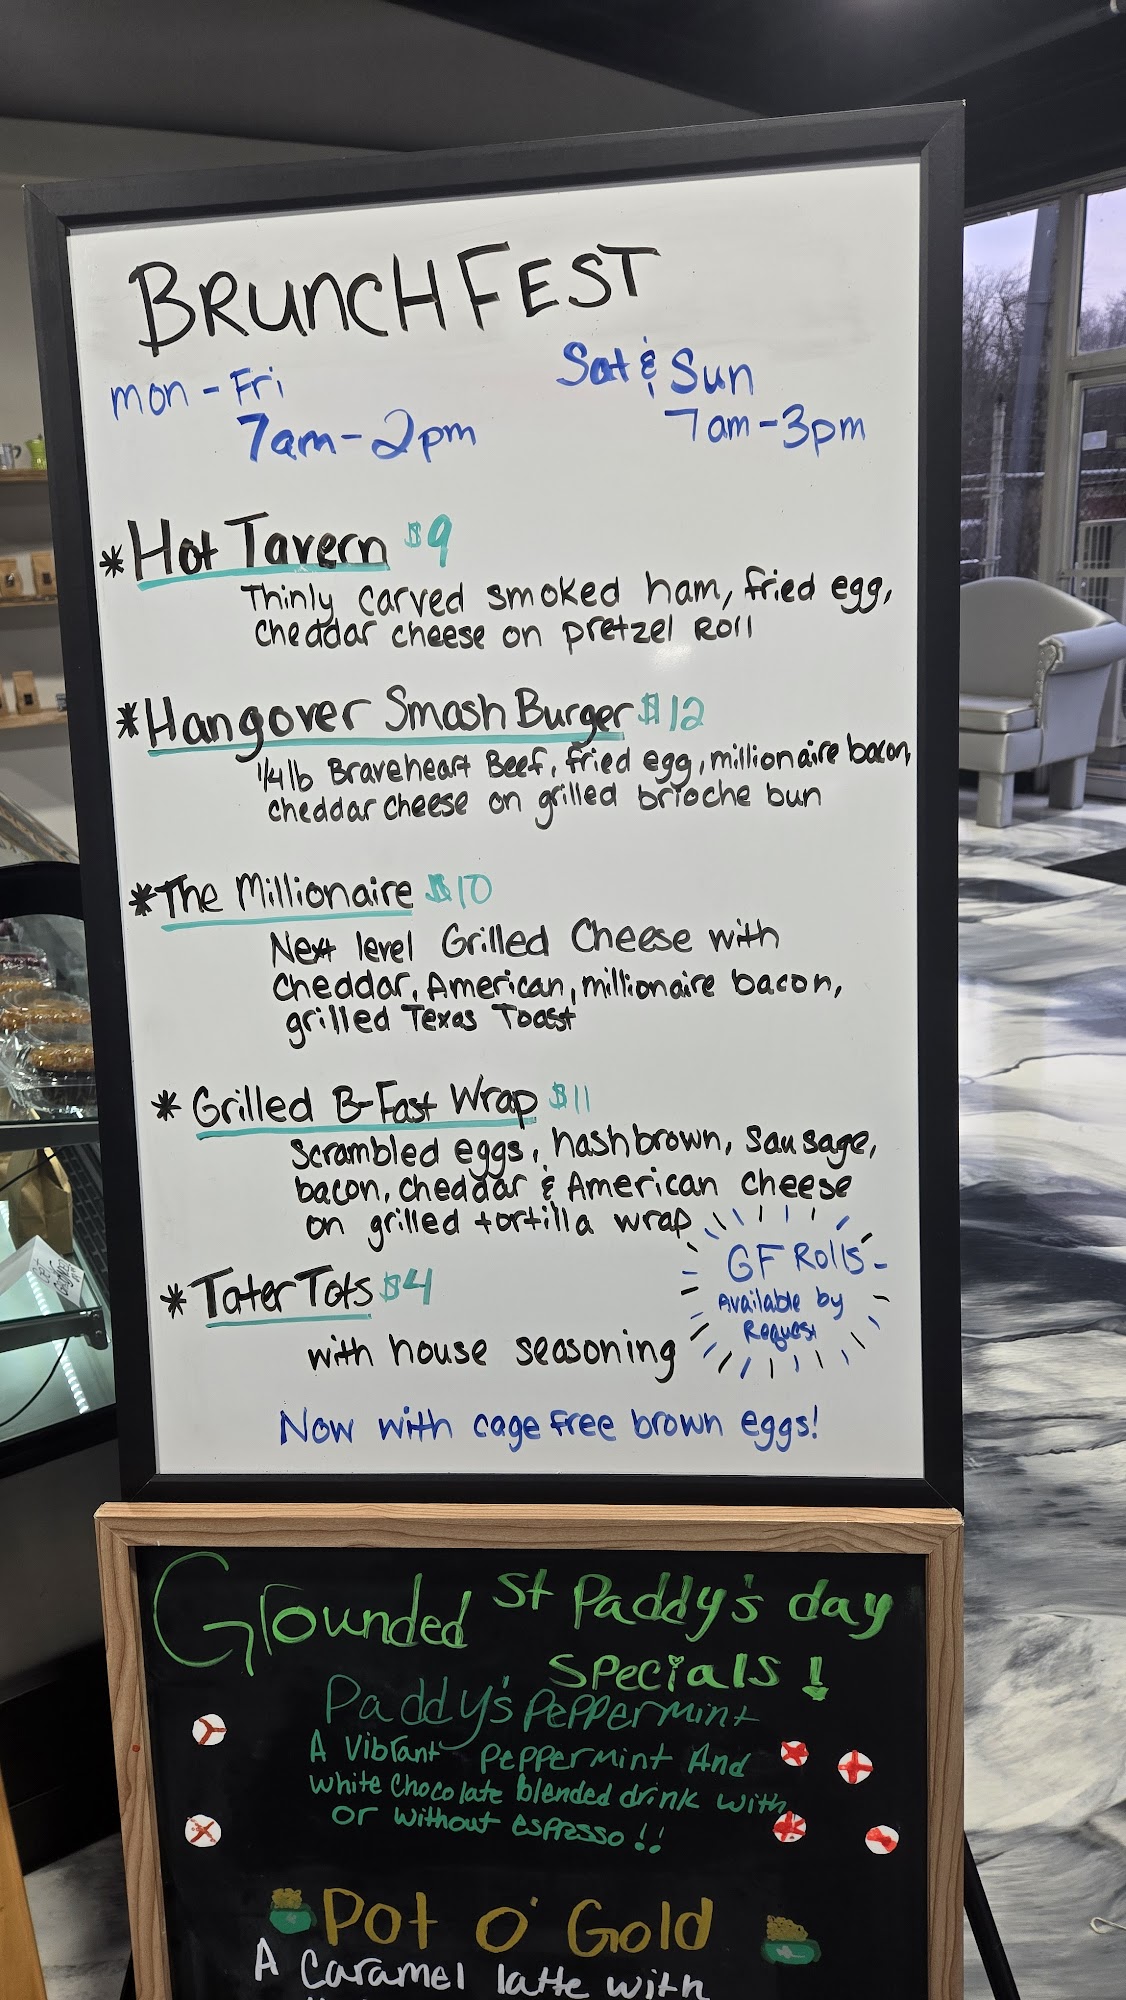 BRUNCH FEST
mon - Fri
7am - 2pm
Sat & Sun
7am - 3pm
* Hot Tavern $9
Thinly carved smoked ham, fried egg,
cheddar cheese on pretzel Roll
* Hangover Smash Burger $12
1/4 lb Braveheart Beef, fried egg, millionaire bacon,
cheddar cheese on grilled brioche bun
* The Millionaire $10
Next level Grilled Cheese with
Cheddar, American, millionaire bacon,
grilled Texas Toast
* Grilled B-Fast Wrap $11
Scrambled eggs, hashbrown, sausage,
bacon, cheddar & American cheese
on grilled tortilla wrap
GF Rolls
Available by
Request
* Tater Tots $4
with house seasoning
Now with cage free brown eggs!
Grounded St Paddy's day
Specials!
Paddy's Peppermint
A Vibrant Peppermint And
White Chocolate blended drink with
or without Espresso!!
Pot O' Gold
A Caramel latte with